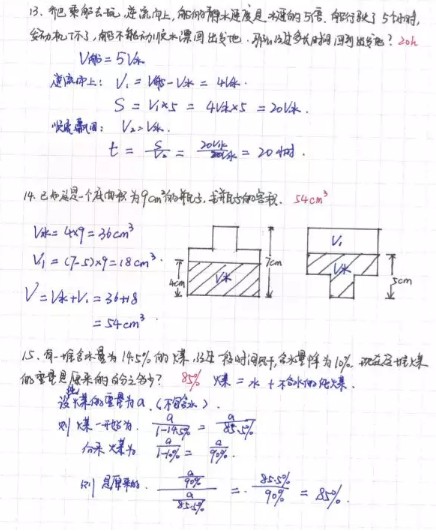 13. 乘船去玩,逆流而上,船的静水速度是水速的5倍,船行驶了5小时,
发动机坏了,船不能动,顺水漂回出发地. 20h
V船=5V水
逆流而上: V₁=V船-V水=4V水.
S=V₁×5=4V水×5=20V水.
V₂=V水.
t=S/V₂=20V水/V水=20小时.
14. 已知这是一个底面积为9cm²的瓶子,求瓶子的容积. 54cm³
V水=4×9=36cm³
V₁=(7-5)×9=18cm³.
V=V水+V₁=36+18
=54cm³.
4cm V水 7cm V₁ V水 5cm
15. 有一堆含水量为14.5%的煤,经一段时间风干,含水量降为10%.现在这堆煤
的重量是原来的百分之多少? 85% 煤=水+不含水的纯煤.
设纯煤的重量为a.(不含水).
则煤一开始为 a/(1-14.5%)=a/85.5%
后来煤为 a/(1-10%)=a/90%.
则是原来的. (a/90%)/(a/85.5%)=85.5%/90%=85%.